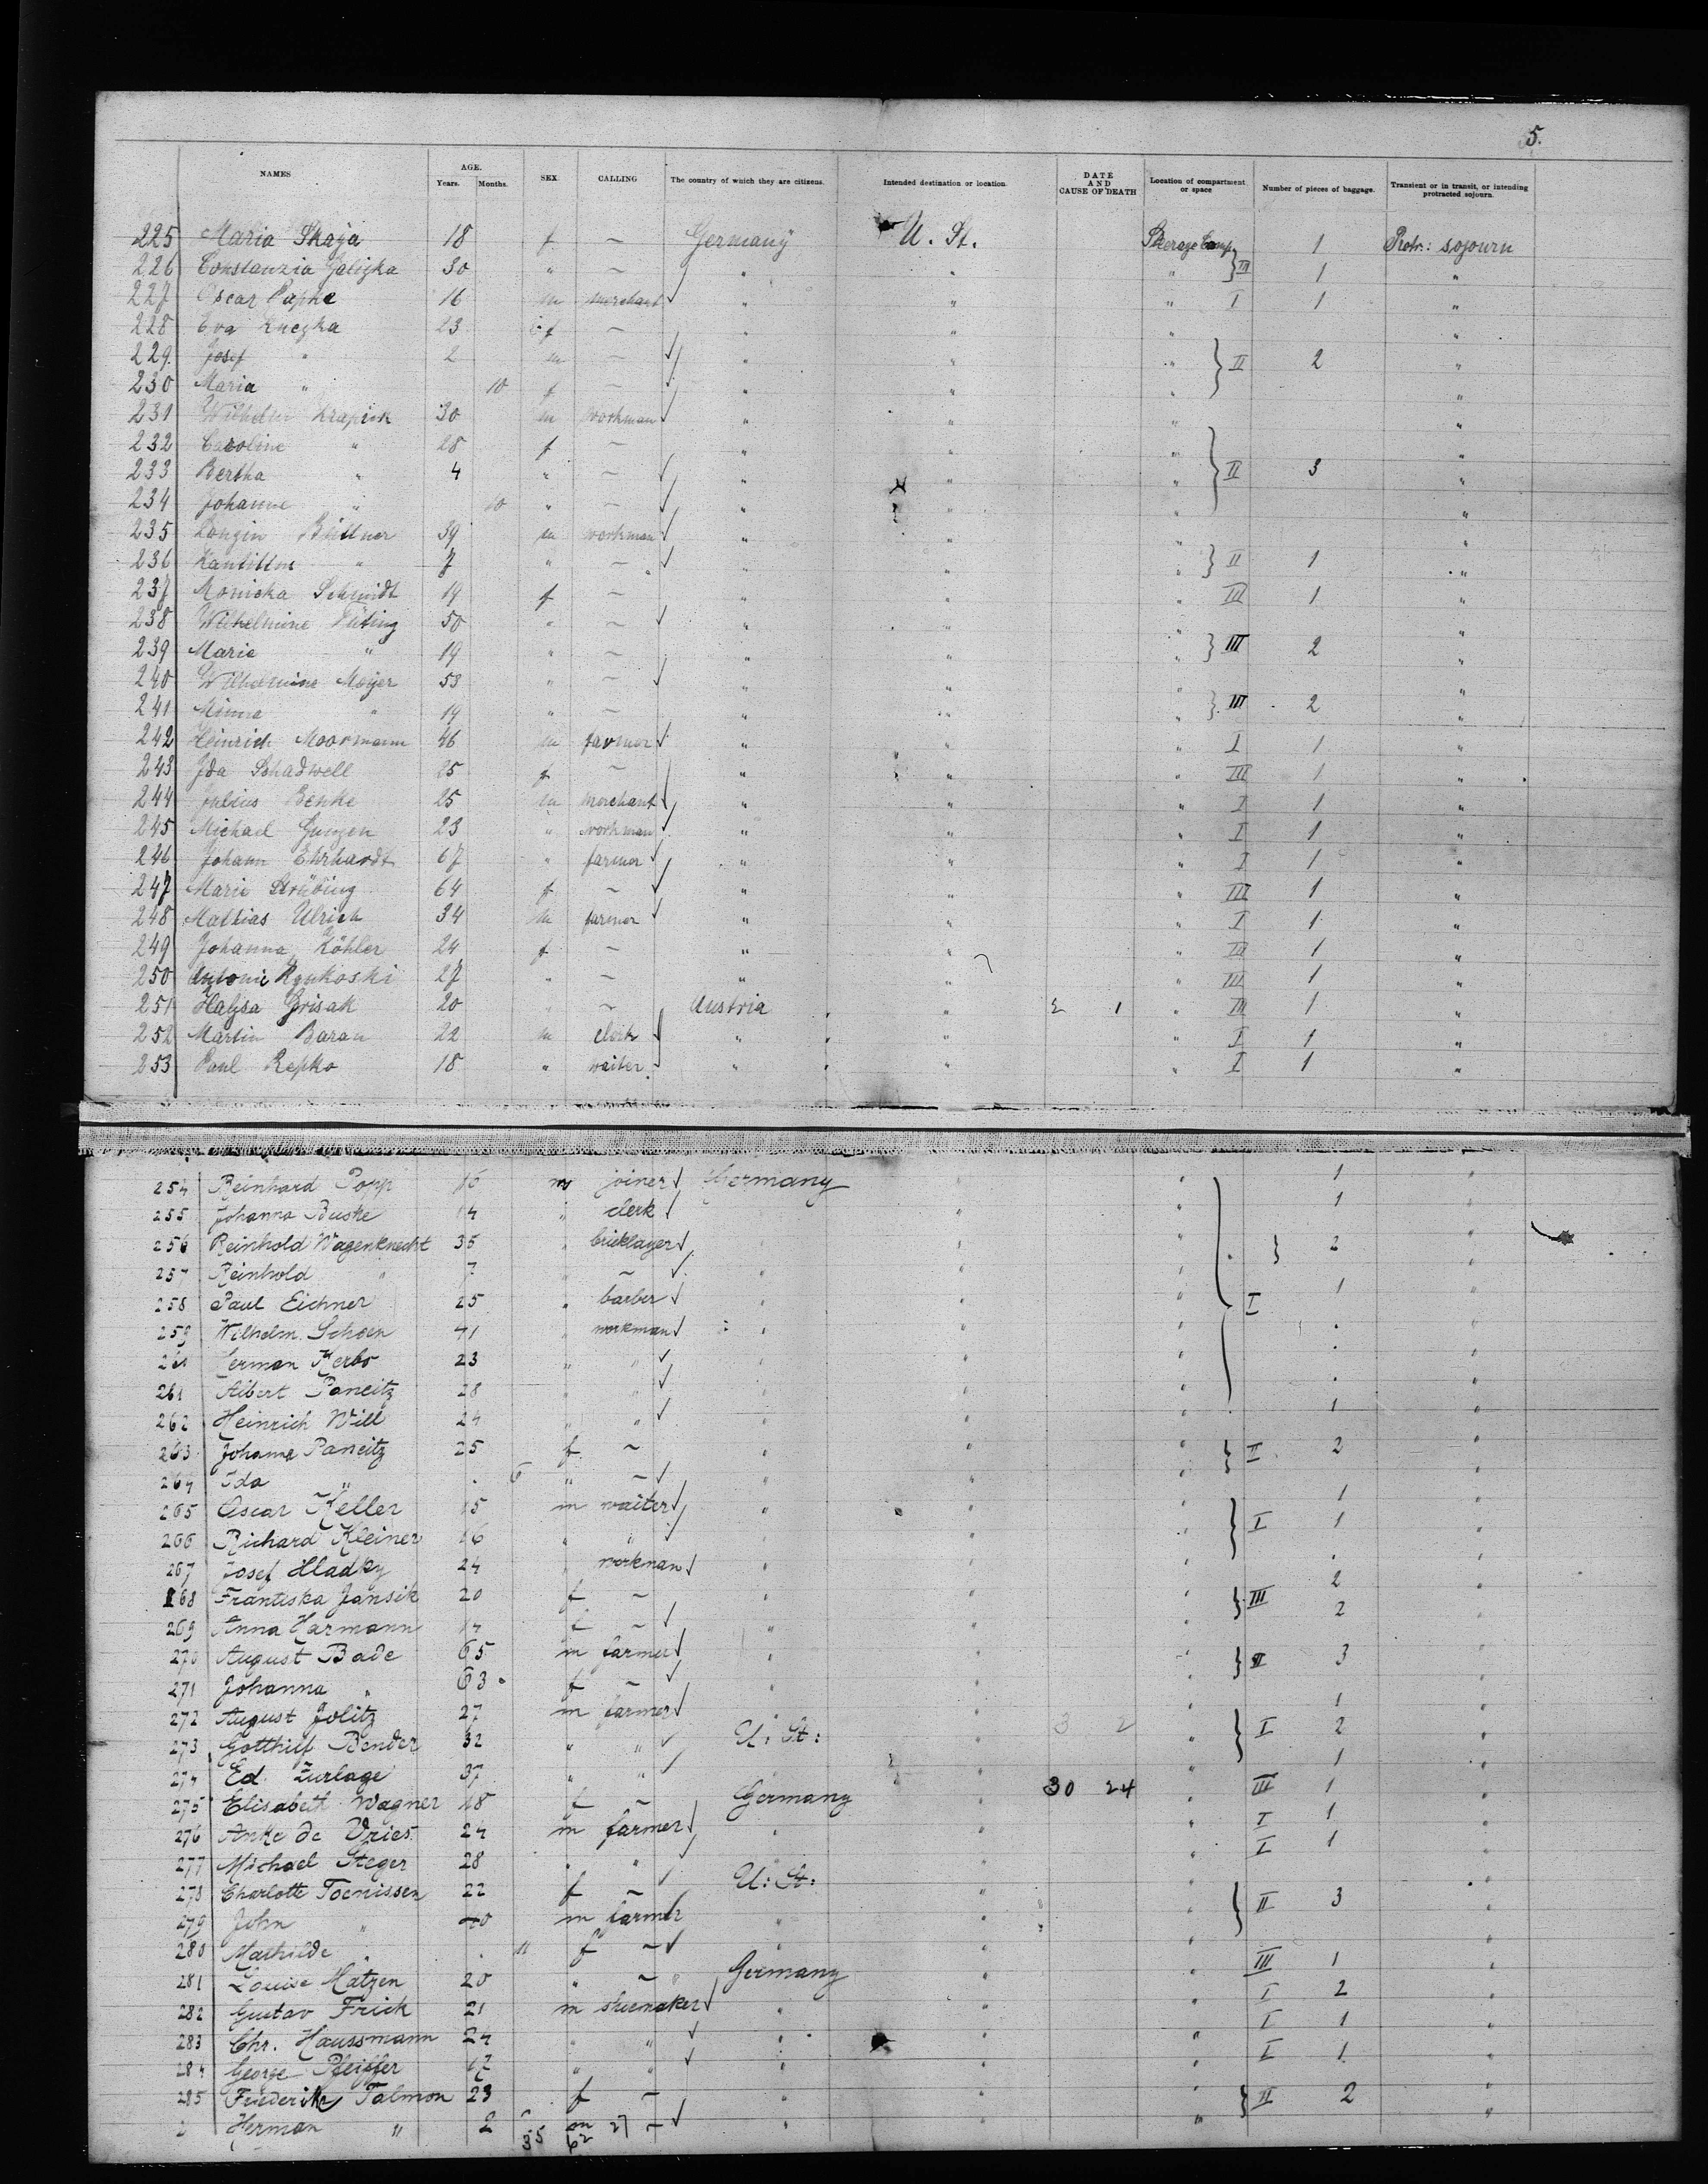 5.
NAMES AGE. Years. Months. SEX CALLING The country of which they are citizens. Intended destination or location. DATE AND CAUSE OF DEATH Location of compartment or space Number of pieces of baggage. Transient or in transit, or intending protracted sojourn.
225 Maria Skaja 18 f – Germany U. St. Steerage Comp 1 Protr: sojourn
226 Constanzia 30 " – " " " } III 1 "
227 Oscar Papke 16 m merchant " " " I 1 "
228 Eva 23 f – " " " "
229. Josef " 2 m – " " " } II 2 "
230 Maria " 10 f – " " " "
231 Wilhelm 30 m workman " " " "
232 Caroline " 28 f – " " " "
233 Bertha " 4 " – " " " } II 3 "
234 Johanne " 10 " – " " " "
235 Longin Büttner 39 m workman " " " "
236 " 7 " – " " " } II 1 "
237 Monicka Schmidt 19 f – " " " III 1 "
238 Wilhelmine 50 " – " " " "
239 Marie " 19 " – " " " } III 2 "
240 Wilhelmine Meijer 53 " – " " " "
241 Minna " 19 " – " " " } III 2 "
242 Heinrich Moormann 46 m farmer " " " I 1 "
243 Ida Schadwell 25 f – " " " III 1 "
244 Julius Benke 25 m merchant " " " I 1 "
245 Michael 23 " workman " " " I 1 "
246 Johann Ehrhardt 67 " farmer " " " I 1 "
247 Marie Strübing 64 f – " " " III 1 "
248 Mathias Ulrich 34 m farmer " " " I 1 "
249 Johanna Köhler 24 f – " " " III 1 "
250 Antonie 27 " – " " " III 1 "
251 Grisak 20 " – Austria " 1 " III 1 "
252 Martin Baran 22 m clerk " " " I 1 "
253 Paul Repko 18 " waiter " " " I 1 "
254 Reinhard Popp 16 m joiner Germany " " 1 "
255 Johanna Buske 14 " clerk " " 1 "
256 Reinhold Wagenknecht 35 " bricklayer " " } 2 "
257 Reinhold " 7 " – " " " "
258 Paul Eichner 25 " barber " " " I 1 "
259 Wilhelm. Schoen 41 " workman " " " "
Kerbs 23 " " " " " "
261 Albert Paneitz 28 " " " " " "
262 Heinrich Will 24 " " " " " 1 "
263 Johanna Paneitz 25 f – " " " } II 2 "
264 Ida " 6 " – " " " "
265 Oscar Keller 15 m waiter " " " 1 "
266 Richard Kleiner 16 " " " " " } I 1 "
267 Josef Hladky 24 " workman " " " "
268 Frantiska Jansik 20 f – " " " } III 2 "
269 Anna Harmann 14 f – " " " 2 "
270 August Bade 65 m farmer " " " } II 3 "
271 Johanna " 63 f – " " " "
272 August Jolitz 27 m farmer " " " 1 "
273 Gotthilf Bender 32 " " U. St: " 3 2 " } I 2 "
274 Ed. Zurlage 37 " " " " 1 "
275 Elisabeth Wagner 18 f – Germany " 30 24 " III 1 "
276 Anke de Vries 24 m farmer " " " I 1 "
277 Michael Steger 28 " " " " I 1 "
278 Charlotte Toenissen 22 f – U. St: " " "
279 John " 40 m farmer " " " } II 3 "
280 Mathilde " 11 f – " " " "
281 Louise Matzen 20 " – Germany " " III 1 "
282 Gustav Frick 21 m shoemaker " " " I 2 "
283 Chr. Haussmann 24 " " " " " I 1 "
284 George Pfeiffer " " " " " I 1 "
285 Friederike Talmon 23 f – " " " } II 2 "
2 Herman " 2 m – " " " "
35 62 27